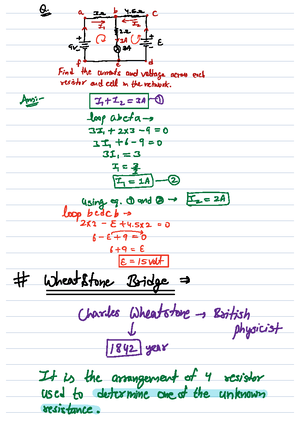 Q.
a 3Ω b 4.5Ω c
I₁ I₂
2Ω
3A
9V
E
f e d
Find the currents and voltage across each
resistor and cell in the network.
Ans:-
I₁ + I₂ = 3A -①
loop abefa →
3I₁ + 2×3 - 9 = 0
3I₁ + 6 - 9 = 0
3I₁ = 3
I₁ = 3/3
I₁ = 1A -②
using eq. ① and ② → I₂ = 2A
loop bedcb →
2×3 - E + 4.5×2 = 0
6 - E + 9 = 0
6 + 9 = E
E = 15 volt
# Wheatstone Bridge ⇒
Charles Wheatstone → British
physicist
↓
1842 year
It is the arrangement of 4 resistor
used to determine one of the unknown
resistance.